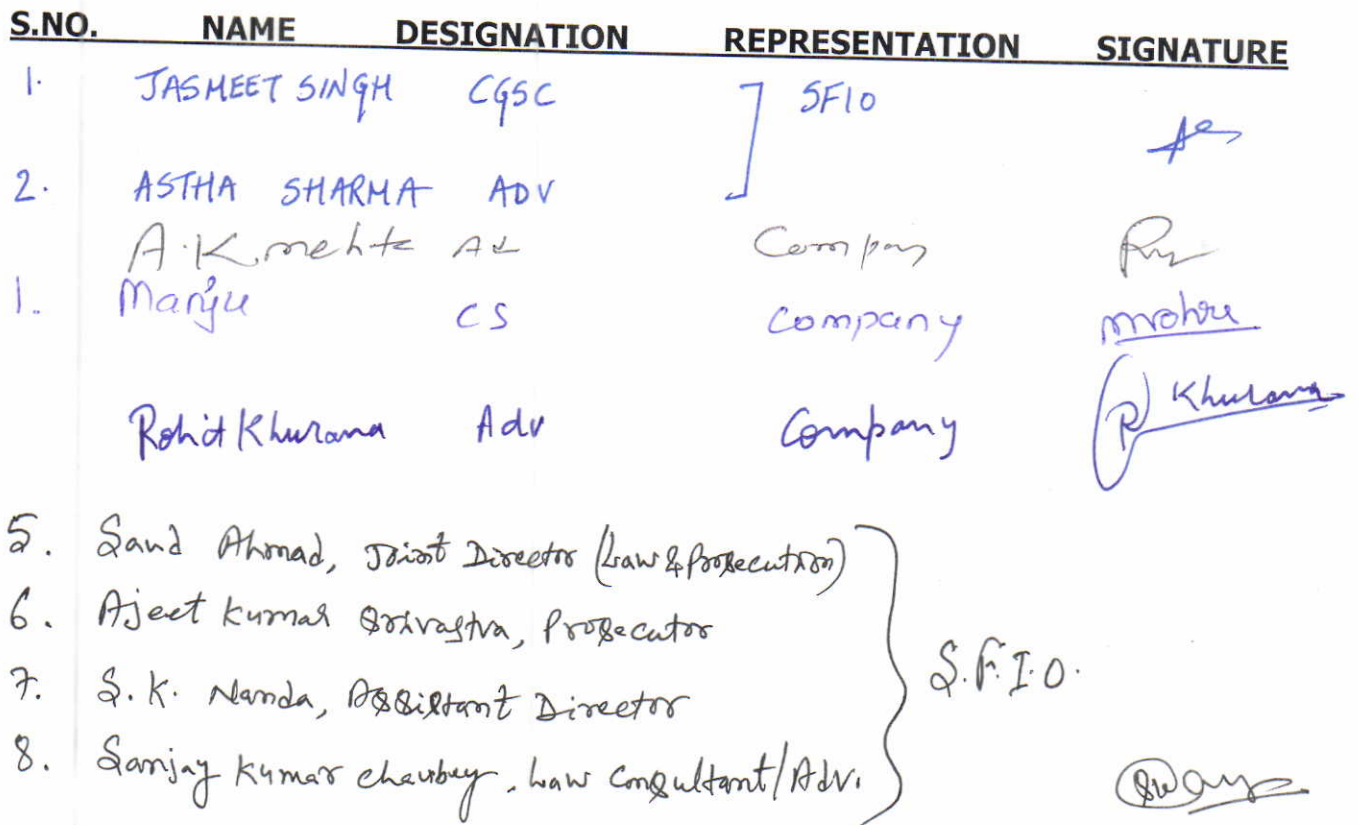 S.NO. NAME DESIGNATION REPRESENTATION SIGNATURE
1. JASMEET SINGH CGSC SFIO
2. ASTHA SHARMA ADV
A.K. mehta
1. Manju CS Company
Rohit Khurana Adv Company R Khurana
5. Saud Ahmad, Joint Director (Law & Prosecution)
6. Ajeet Kumar Srivastva, Prosecutor
S.F.I.O.
7. S.K. Nanda, Assistant Director
8. Sanjay Kumar Chaubey, Law Consultant/Adv.